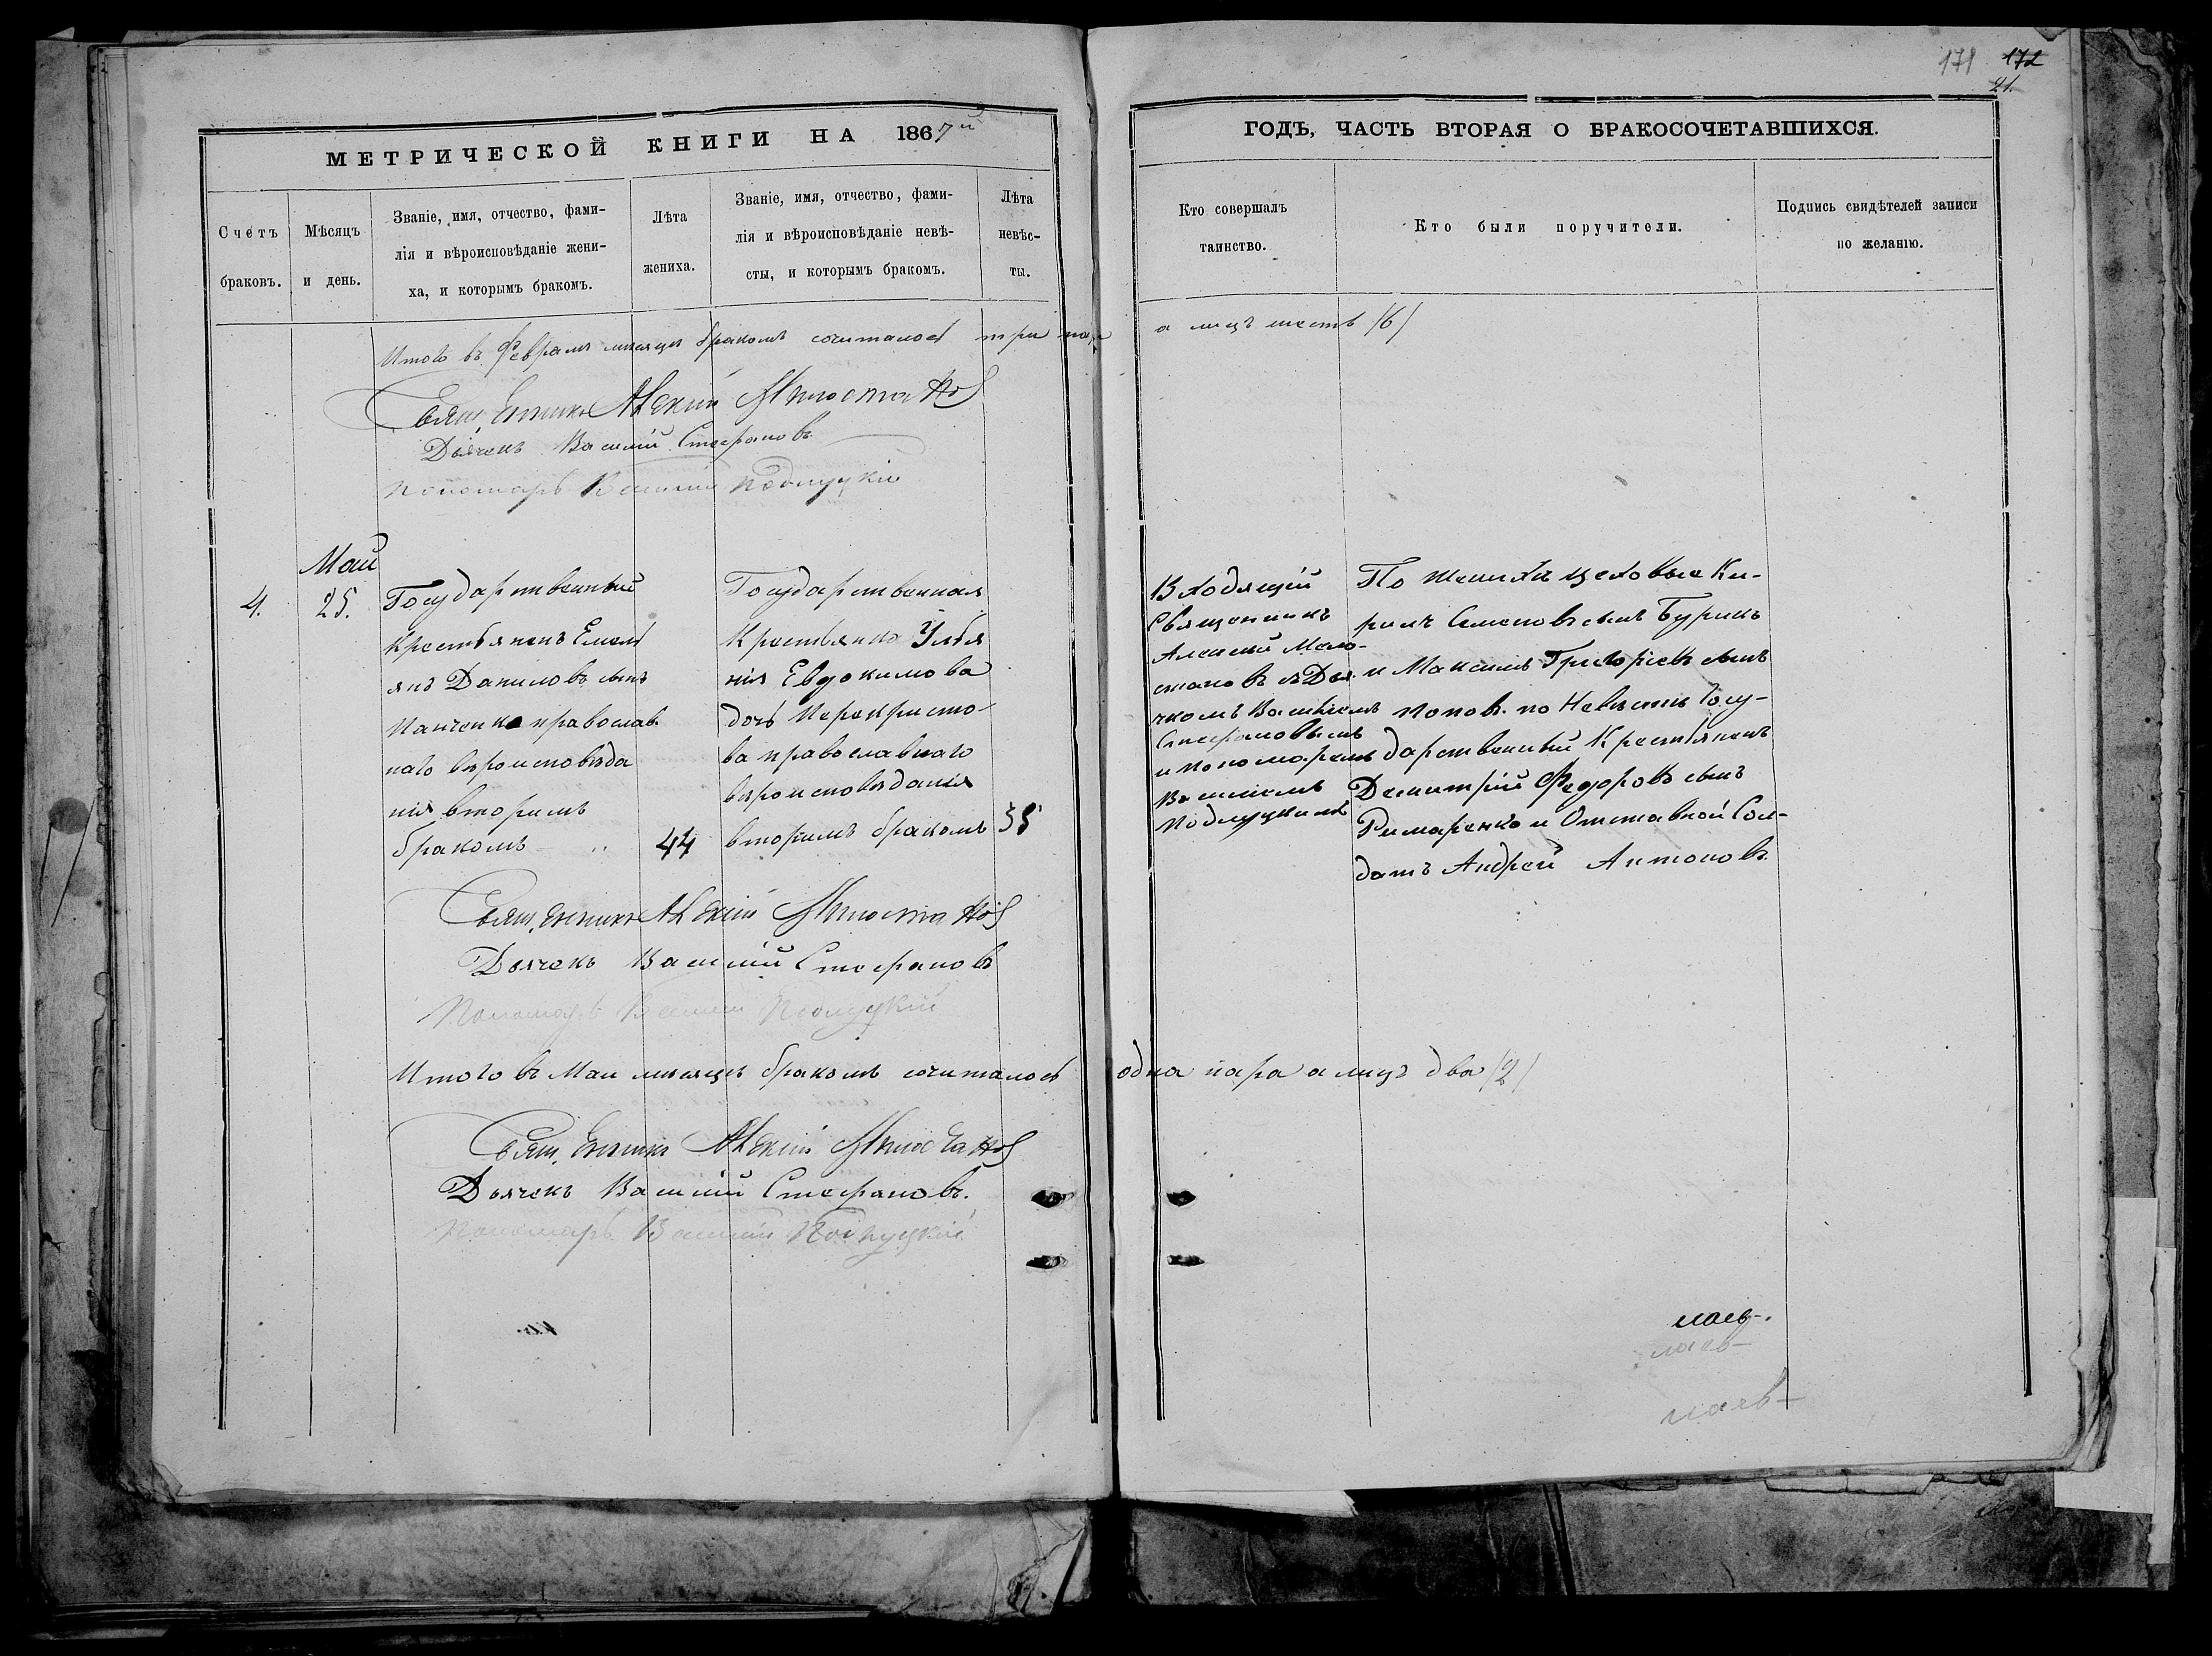 171 172
21.
МЕТРИЧЕСКОЙ КНИГИ НА 1867й
ГОДЪ, ЧАСТЬ ВТОРАЯ О БРАКОСОЧЕТАВШИХСЯ.
Счетъ
браковъ.
Мѣсяцъ
и день.
Званіе, имя, отчество, фами-
лія и вѣроисповѣданіе жени-
ха, и которымъ бракомъ.
Лѣта
жениха.
Званіе, имя, отчество, фами-
лія и вѣроисповѣданіе невѣ-
сты, и которымъ бракомъ.
Лѣта
невѣс-
ты.
Кто совершалъ
таинство.
Кто были поручители.
Подпись свидѣтелей записи
по желанію.
Итого въ Февралѣ мѣсяцѣ бракомъ сочиталось три пары
а лицъ шесть (6)
Священникъ Алексій
Дьячекъ Василій Стефановъ
Пономарь Василій Подлуцкій
Май
4.
25.
Государственный
Крестьянинъ Емель
янъ Даниловъ сынъ
Панченко православ
наго вѣроисповѣда
нія вторымъ
бракомъ
44
Государственная
Крестьянка Улья
нія Евдокимова
дочь Перехристо-
ва православнаго
вѣроисповѣданія
вторымъ бракомъ
35
Входящій
Священникъ
Алексій Мило-
становъ съ Дья
чкомъ Василіемъ
Стефановымъ
и пономаремъ
Василіемъ
Подлуцкимъ
По Женихѣ цеховые Ки-
рилъ Семеновъ сынъ Бурикъ
и Максимъ Григорьевъ сынъ
Поповъ. по Невѣстѣ Госу-
дарственный Крестьянинъ
Димитрій Федоровъ сынъ
Римаренко и Отставной Сол-
датъ Андрей Антоновъ.
Священникъ Алексій
Дьячекъ Василій Стефановъ
Пономарь Василій Подлуцкій
Итого въ Маи мѣсяцѣ бракомъ сочиталось
одна пара а лицъ два (2)
Священникъ Алексій
Дьячекъ Василій Стефановъ.
Пономарь Василій Подлуцкій